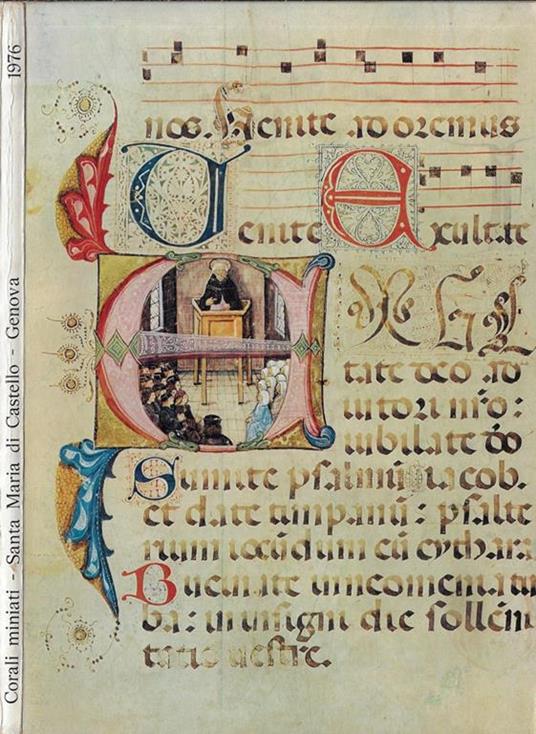 Corali miniati - Santa Maria di Castello - Genova 1976
nos. Venite adoremus
Venite Exultate
tate deo ad
iutori nr̄o:
iubilate dō
Sumite psalmū iacob.
et date timpanū: psalte
rium iocūdum cū cythara
Bucinate inneomenia tu
ba: in insigni die sollēni
tatis vestre.